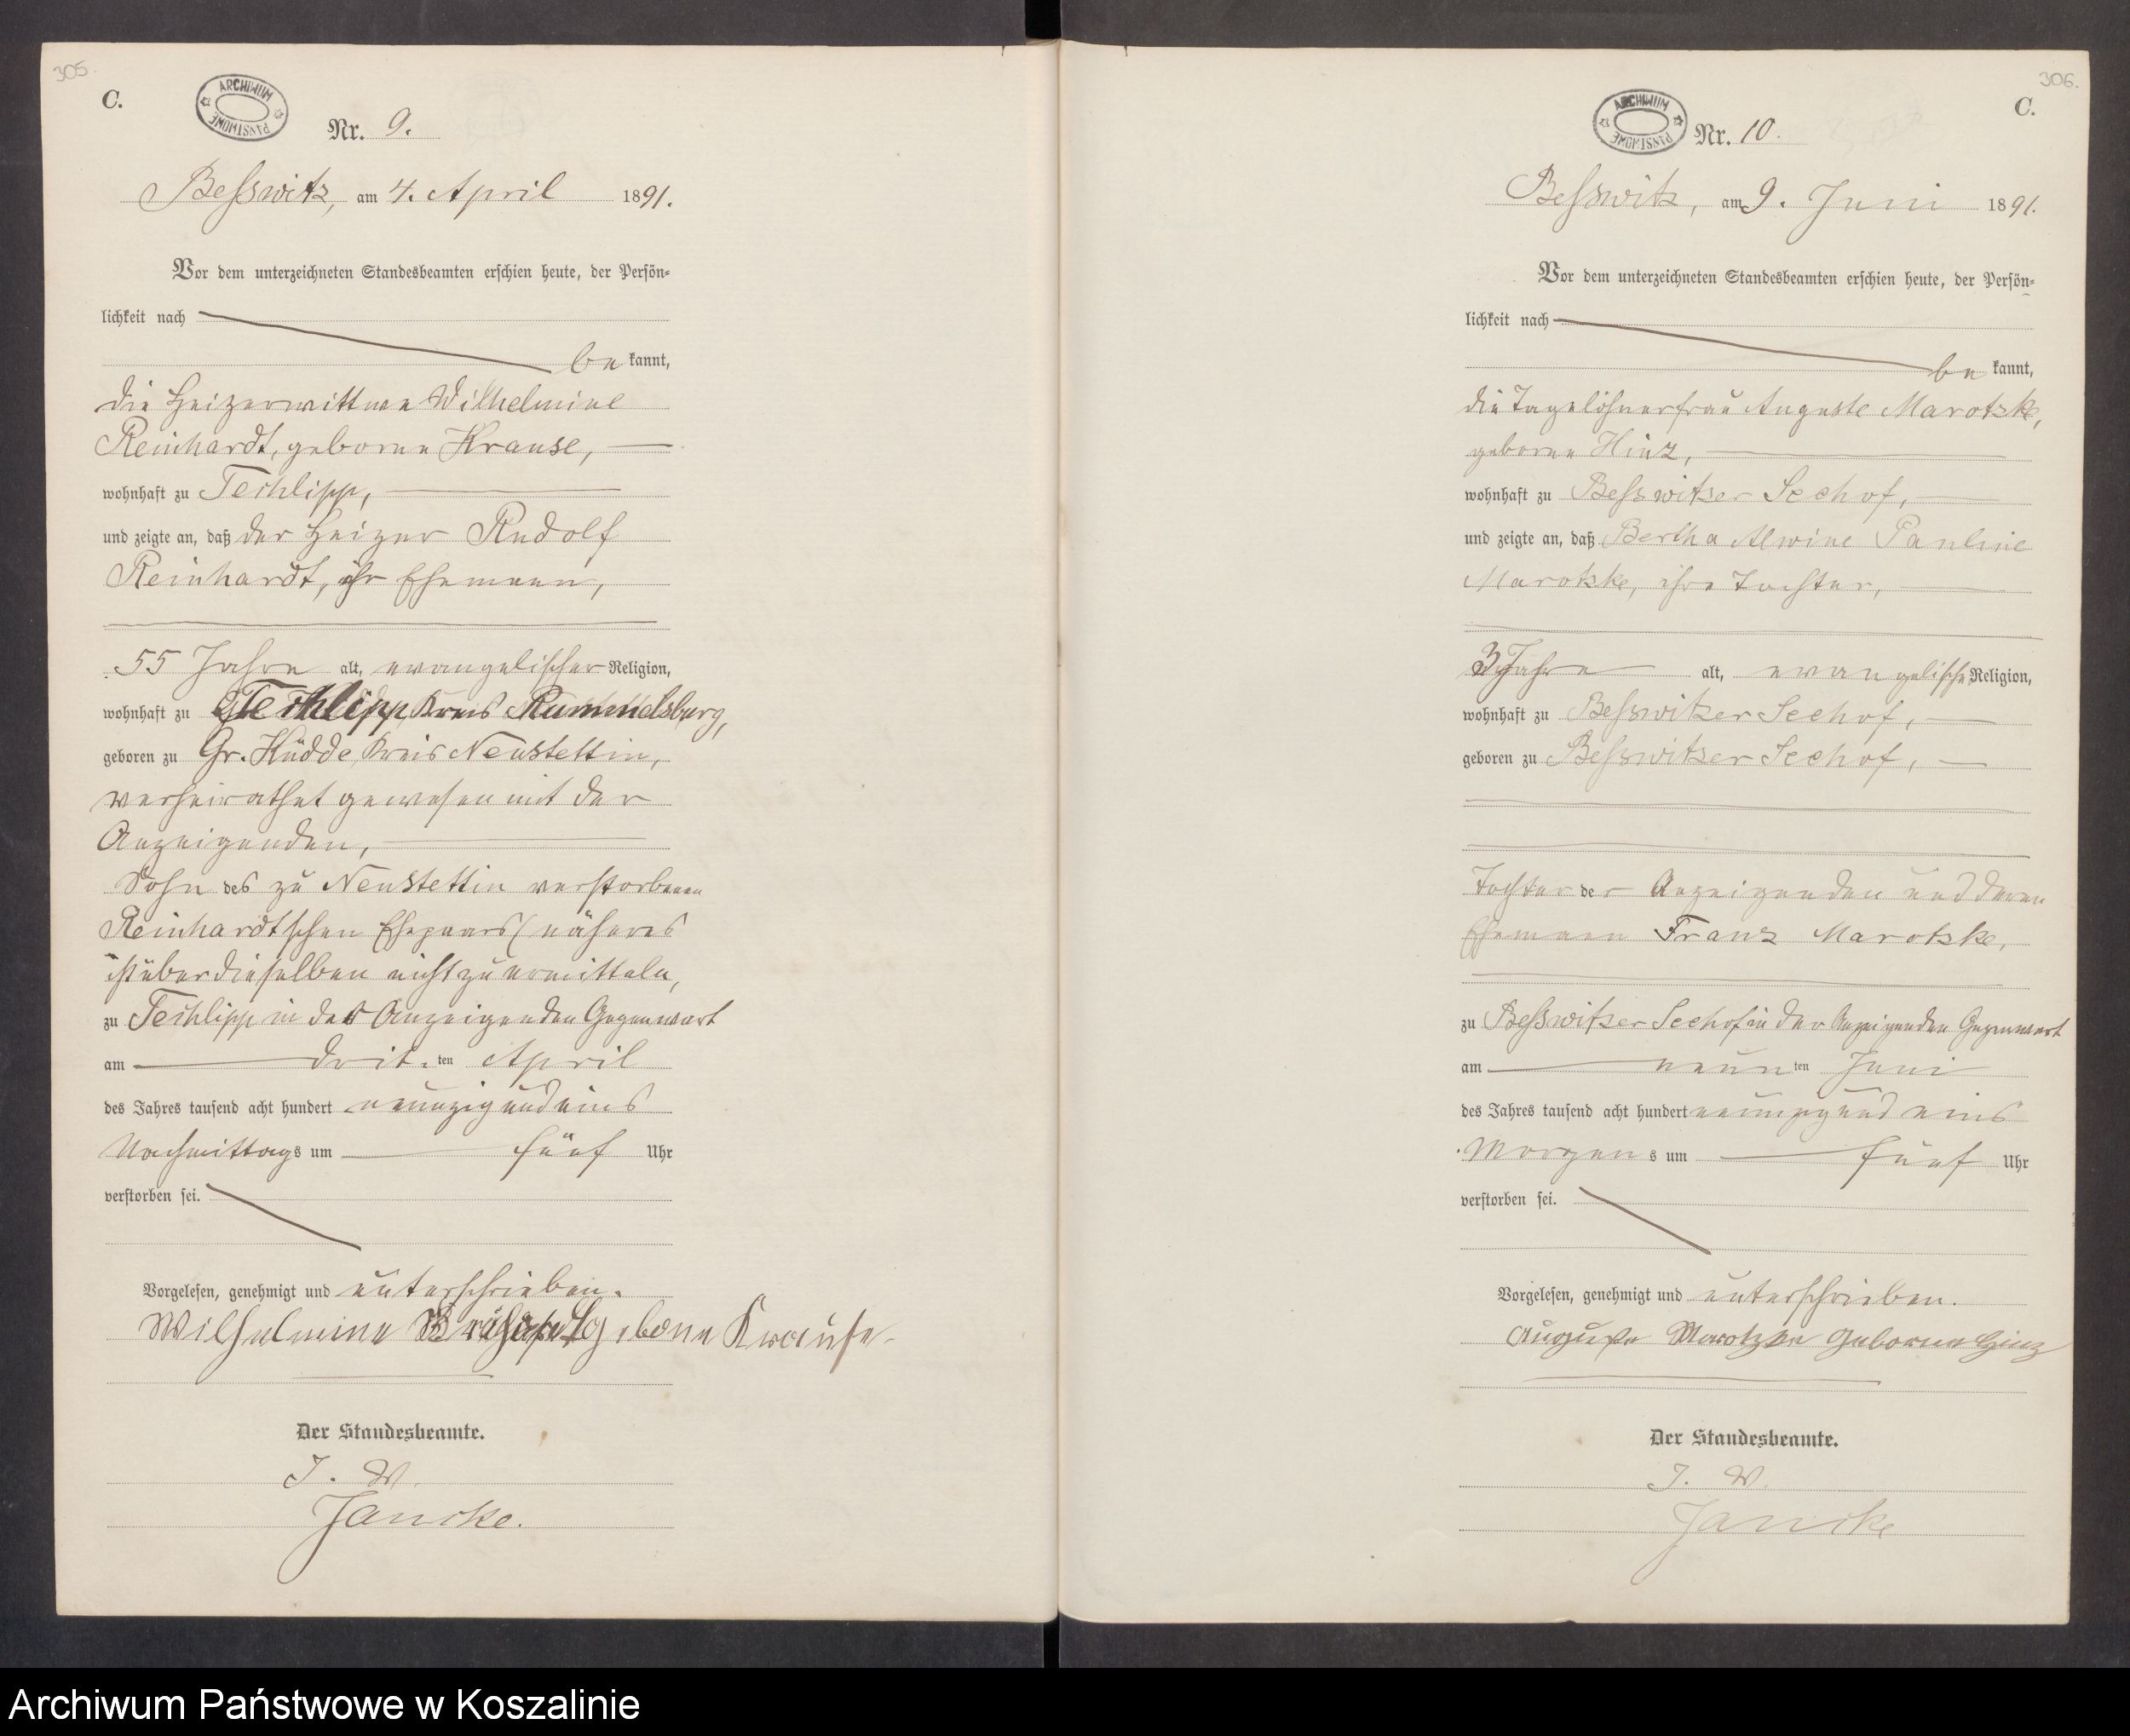 305.
C.
ARCHIWUM PAŃSTWOWE
Nr. 9.
Beßwitz, am 4. April 1891.
Vor dem unterzeichneten Standesbeamten erschien heute, der Persön-
lichkeit nach
be kannt,
die Heizerwittwe Wilhelmine
Reinhardt, geborne Krause,
wohnhaft zu Techlipp,
und zeigte an, daß der Heizer Rudolf
Reinhardt, ihr Ehemann,
55 Jahre alt, evangelischer Religion,
wohnhaft zu Techlipp Kreis Rummelsburg,
geboren zu Gr. Küdde, Kreis Neustettin,
verheirathet gewesen mit der
Anzeigenden,
Sohn des zu Neustettin verstorbenen
Reinhardtschen Ehepaars (näheres
ist über dieselben nicht zu ermitteln,
zu Techlipp in der Anzeigenden Gegenwart
am drit ten April
des Jahres tausend acht hundert neunzig und eins
Nachmittags um fünf Uhr
verstorben sei.
Vorgelesen, genehmigt und unterschrieben.
Wilhelmine geborne Krause
Der Standesbeamte.
J. V.
Jancke.
306.
C.
ARCHIWUM PAŃSTWOWE
Nr. 10.
Beßwitz, am 9. Juni 1891.
Vor dem unterzeichneten Standesbeamten erschien heute, der Persön-
lichkeit nach
be kannt,
die Tagelöhnerfrau Auguste Marotzke,
geborne Hinz,
wohnhaft zu Beßwitzer Seehof,
und zeigte an, daß Bertha Alwine Pauline
Marotzke, ihre Tochter,
3 Jahre alt, evangelischer Religion,
wohnhaft zu Beßwitzer Seehof,
geboren zu Beßwitzer Seehof,
Tochter der Anzeigenden und deren
Ehemann Franz Marotzke,
zu Beßwitzer Seehof in der Anzeigenden Gegenwart
am neun ten Juni
des Jahres tausend acht hundert neunzig und eins
Morgens um fünf Uhr
verstorben sei.
Vorgelesen, genehmigt und unterschrieben.
Auguste Marotzke Geborne Hinz
Der Standesbeamte.
J. V.
Jancke
Archiwum Państwowe w Koszalinie